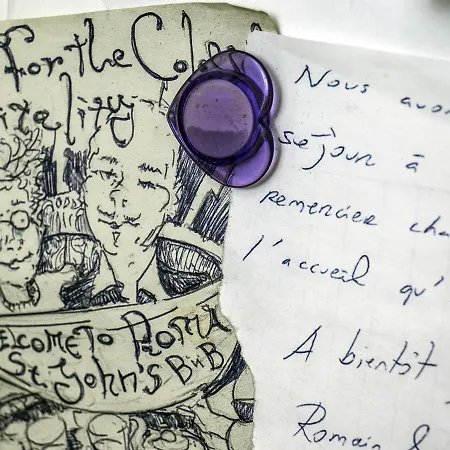 For the Col
ality
WELCOME TO ROMA
St. John's BnB
Nous avon
séjour à
remercier cha
l'accueil qu'
A bientôt
Romain &